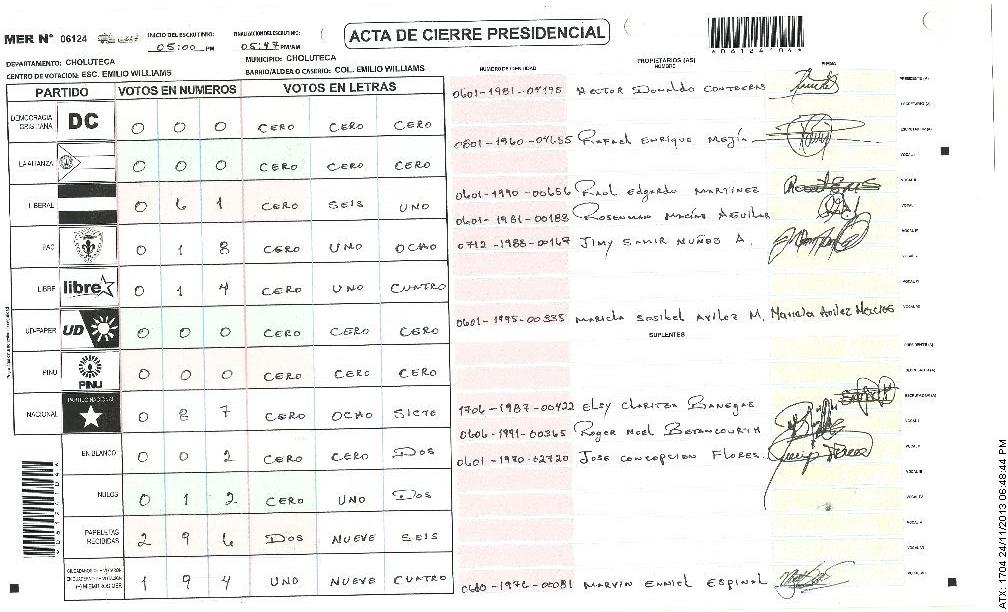 MER N° 06124
INICIO DEL ESCRUTINIO: 05:00 PM
FINALIZACION ESCRUTINIO: 05:47 PM/AM
ACTA DE CIERRE PRESIDENCIAL
DEPARTAMENTO: CHOLUTECA
MUNICIPIO: CHOLUTECA
CENTRO DE VOTACION: ESC. EMILIO WILLIAMS
BARRIO/ALDEA O CASERIO: COL. EMILIO WILLIAMS
PARTIDO VOTOS EN NUMEROS VOTOS EN LETRAS
DEMOCRACIA CRISTIANA DC 0 0 0 CERO CERO CERO
LA ALIANZA 0 0 0 CERO CERO CERO
LIBERAL 0 6 1 CERO SEIS UNO
PAC 0 1 8 CERO UNO OCHO
LIBRE libre 0 1 4 CERO UNO CUATRO
UD-FAPER UD 0 0 0 CERO CERO CERO
PINU PINU 0 0 0 CERO CERO CERO
NACIONAL PARTIDO NACIONAL 0 8 7 CERO OCHO SIETE
EN BLANCO 0 0 2 CERO CERO DOS
NULOS 0 1 2 CERO UNO DOS
PAPELETAS RECIBIDAS 2 9 6 DOS NUEVE SEIS
1 9 4 UNO NUEVE CUATRO
NUMERO DE IDENTIDAD PROPIETARIOS (AS) NOMBRE FIRMA
HECTOR DONALDO CONTRERAS PRESIDENTE (A)
RAFAEL ENRIQUE MEJÍA
0601-1990-00656 RAUL EDGARDO MARTINEZ
0601-1981-00188 ROSENMAN MACIAS AGUILAR
JIMY SAMIR MUÑOZ A.
0601-1995-00335 M.
SUPLENTES
1706-1987-00422 ELSY CLARITZA BANEGAS
0606-1991-00365 ROGER NOEL BETANCOURTH
0601-1970-02720 JOSE CONCEPCION FLORES
MARVIN ENNIEL ESPINAL
ATX: 1704 24/11/2013 06:48:44 PM